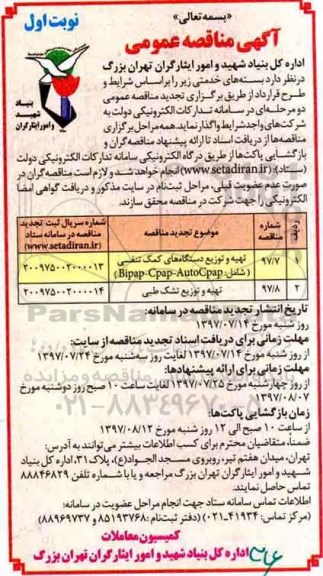 «بسمه تعالی»
نوبت اول
آگهی مناقصه عمومی
بنیاد
شهید
و امور ایثارگران
اداره کل بنیاد شهید و امور ایثارگران تهران بزرگ
در نظر دارد بسته‌های خدمتی زیر را براساس شرایط و
طرح قرارداد از طریق برگزاری تجدید مناقصه عمومی
دو مرحله‌ای در سامانه تدارکات الکترونیکی دولت به
شرکت‌های واجد شرایط واگذار نماید. همه مراحل برگزاری
مناقصه‌ها از دریافت اسناد تا ارائه پیشنهاد مناقصه‌گران و
بازگشایی پاکت‌ها از طریق درگاه الکترونیکی سامانه تدارکات الکترونیکی دولت
(ستاد): (www.setadiran.ir) انجام خواهد شد و لازم است مناقصه‌گران در
صورت عدم عضویت قبلی، مراحل ثبت‌نام در سایت مذکور و دریافت گواهی امضا
الکترونیکی را جهت شرکت در مناقصه محقق سازند.
ردیف | شماره مناقصه | موضوع تجدید مناقصه | شماره سریال ثبت تجدید مناقصه در سامانه ستاد (www.setadiran.ir)
۱ | ۹۷/۷ | تهیه و توزیع دستگاه‌های کمک تنفسی (شامل: Bipap-Cpap-AutoCpap) | ۲۰۰۹۷۵۰۰۲۰۰۰۰۱۳
۲ | ۹۷/۸ | تهیه و توزیع تشک طبی | ۲۰۰۹۷۵۰۰۲۰۰۰۰۱۴
تاریخ انتشار تجدید مناقصه در سامانه:
روز شنبه مورخ ۱۳۹۷/۰۷/۱۴
مهلت زمانی برای دریافت اسناد تجدید مناقصه از سایت:
از روز شنبه مورخ ۱۳۹۷/۰۷/۱۴ لغایت روز سه‌شنبه مورخ ۱۳۹۷/۰۷/۲۴
مهلت زمانی برای ارائه پیشنهادها:
از روز چهارشنبه مورخ ۱۳۹۷/۰۷/۲۵ لغایت ساعت ۱۰ صبح روز دوشنبه مورخ
۱۳۹۷/۰۸/۰۷
زمان بازگشایی پاکت‌ها:
از ساعت ۱۰ صبح الی ۱۲ روز شنبه مورخ ۱۳۹۷/۰۸/۱۲
ضمنا، متقاضیان محترم برای کسب اطلاعات بیشتر می‌توانند به آدرس:
تهران، میدان هفتم تیر، روبروی مسجد الجواد(ع)، پلاک ۳۱، اداره کل بنیاد
شهید و امور ایثارگران تهران بزرگ مراجعه و یا با شماره تلفن ۸۸۸۴۶۸۲۹
تماس حاصل نمایند.
اطلاعات تماس سامانه ستاد جهت انجام مراحل عضویت در سامانه:
(مرکز تماس: ۴۱۹۳۴-۰۲۱) (دفتر ثبت‌نام: ۸۵۱۹۳۷۶۸ و ۸۸۹۶۹۷۳۷)
کمیسیون معاملات
اداره کل بنیاد شهید و امور ایثارگران تهران بزرگ